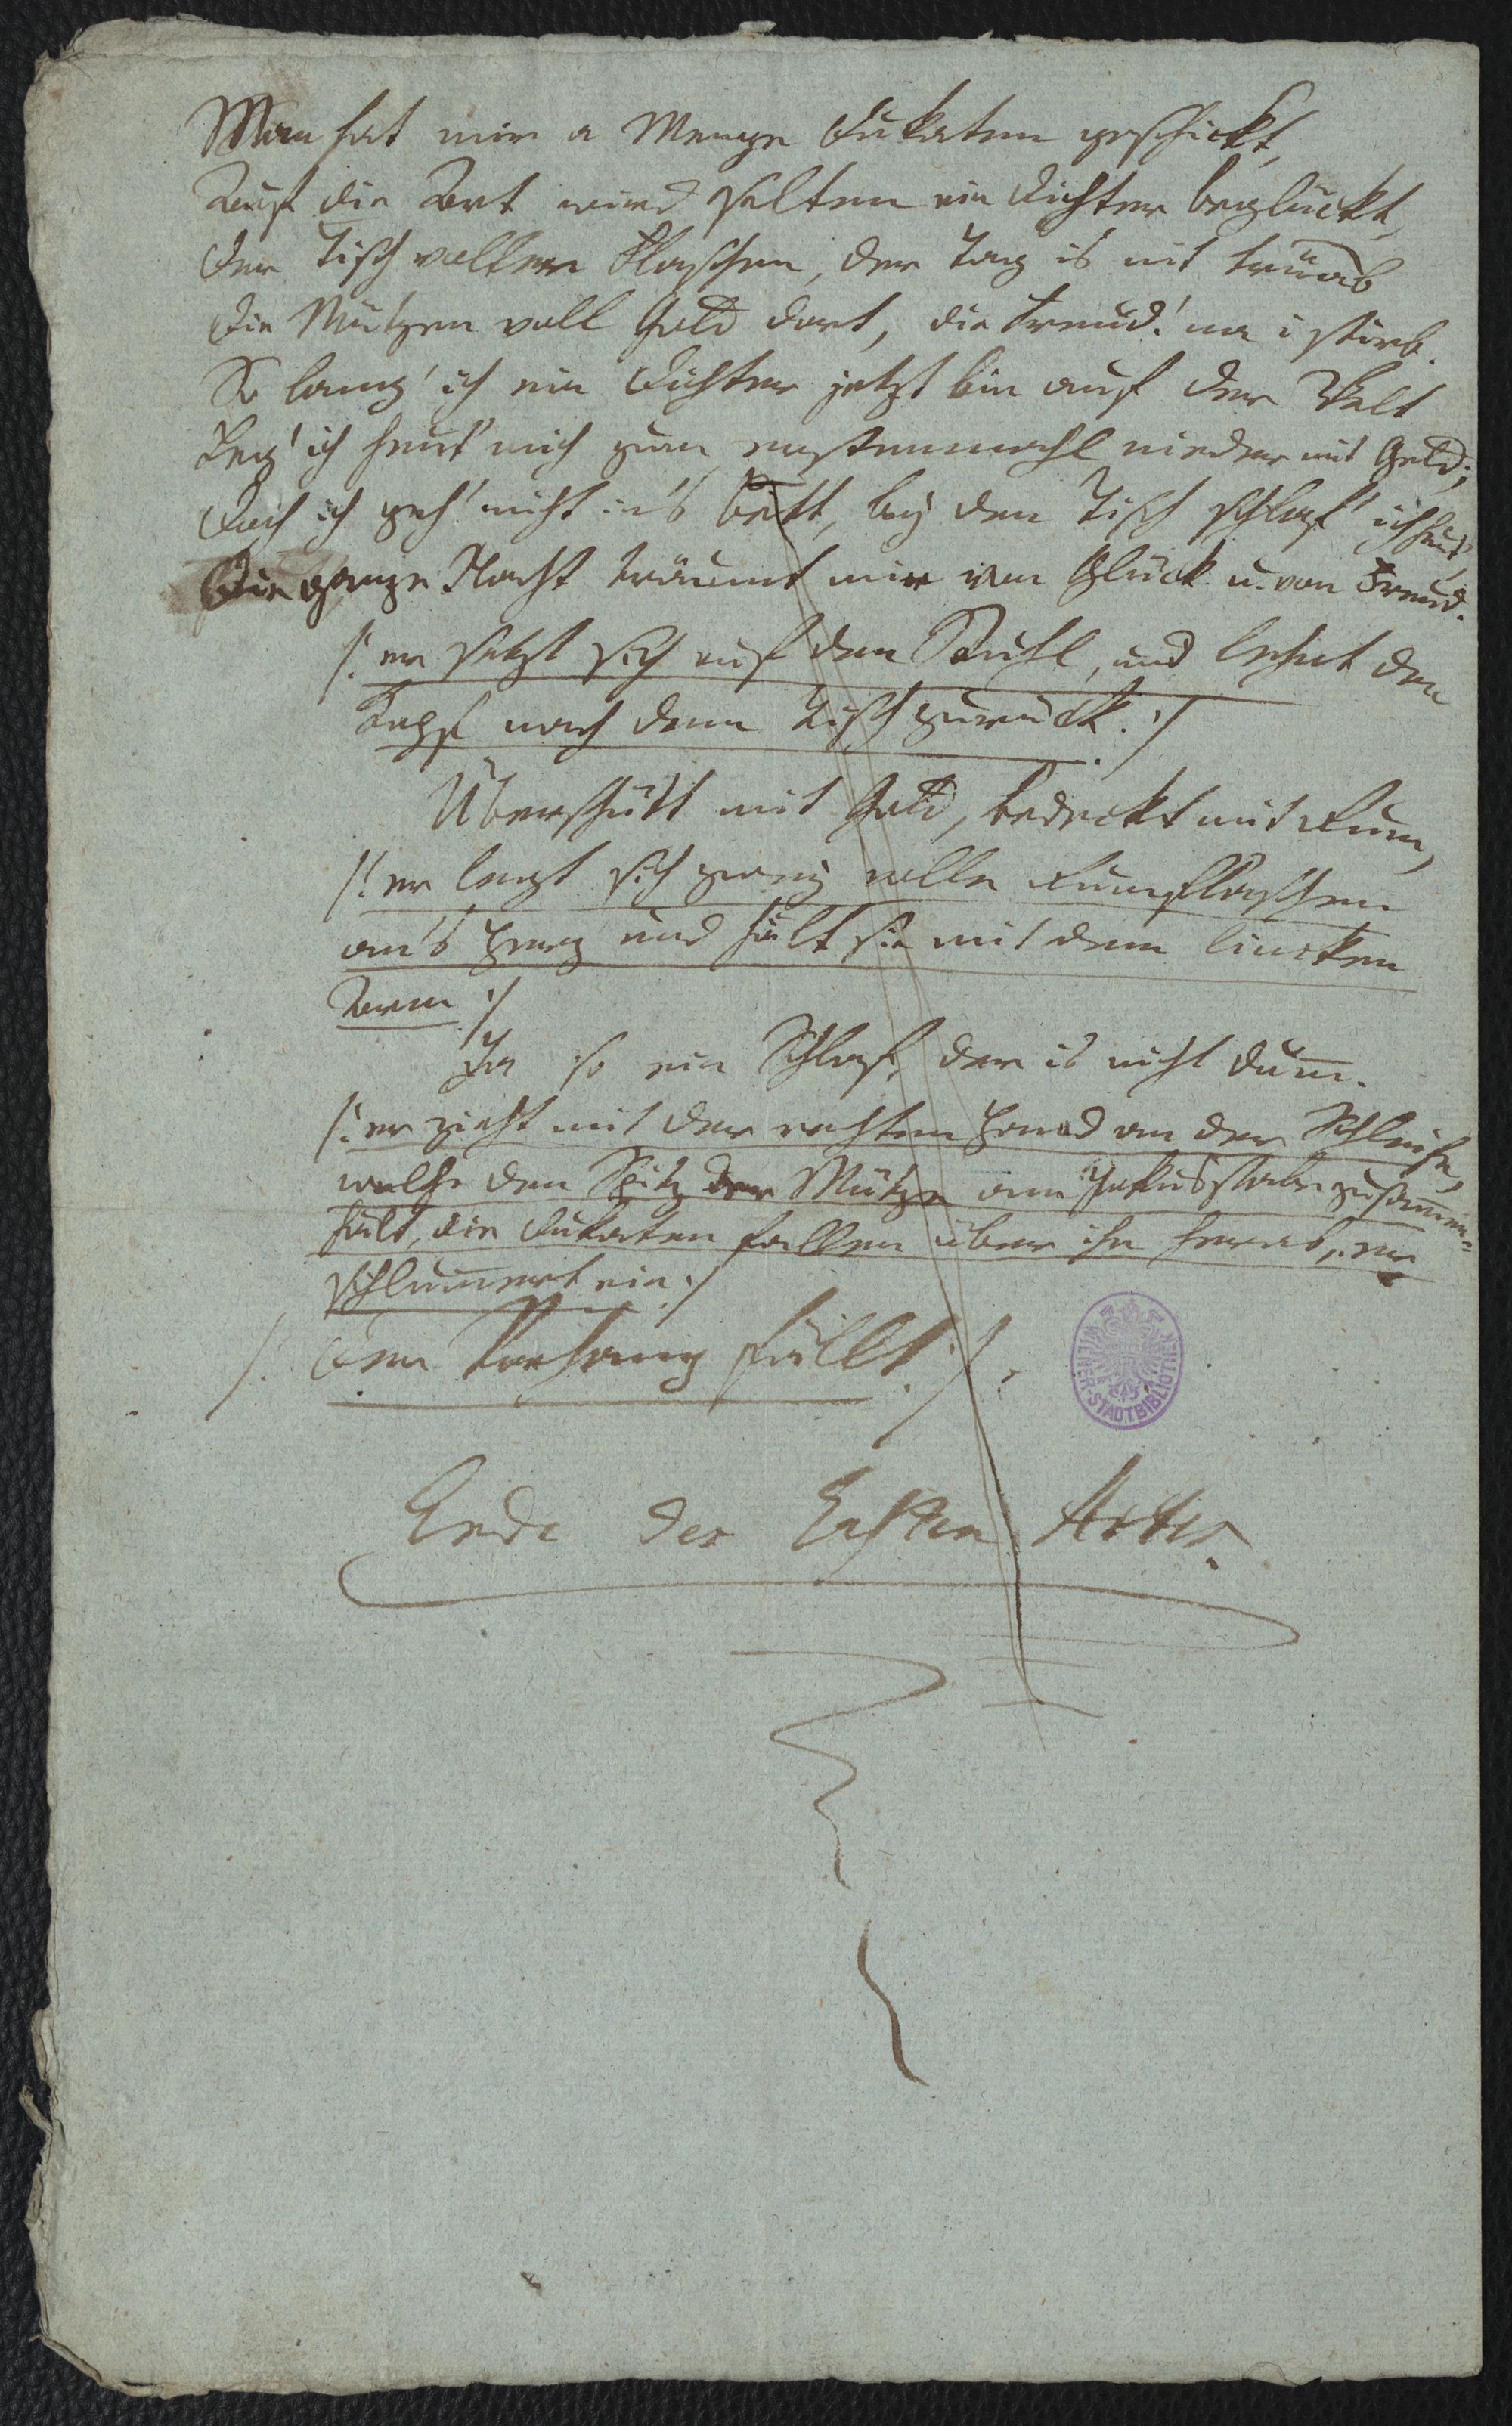 Man hat mir a Menge Dukaten geschickt,
Auf die Art wird selten ein Dichter beglückt,
Der Tisch voller Flaschen, der Tag is nit trüab
Die Mützen voll Geld dort, die Freud! na i stirb.
So lang' ich ein Dichter jetzt bin auf der Welt
Leg' ich heut' mich zum erstenmahl nieder mit Geld;
Doch ich geh' nicht in's Bett, bey den Tisch schlaf' ich heut',
Die ganze Nacht träumt mir von Glück u. von Freud.
/: er setzt sich auf den Stuhl, und lehnt den
Kopf nach dem Tisch zurück. :/
Überschütt mit Geld, bedeckt mit Rum,
/: er legt sich zwey volle Rumflaschen
an's Herz und hält sie mit dem lincken
Arm :/
Ja so ein Schlaf, der is nicht dum̄.
/: er zieht mit der rechten Hand an der Schleife,
welche den Spitz der Mütze am zusam̄en=
hält, die Dukaten fallen über ihn herab, er
schlum̄ert ein :/
/: Der Vorhang fällt. :/
Ende des Ersten Actes.
WIENER-STADTBIBLIOTHEK